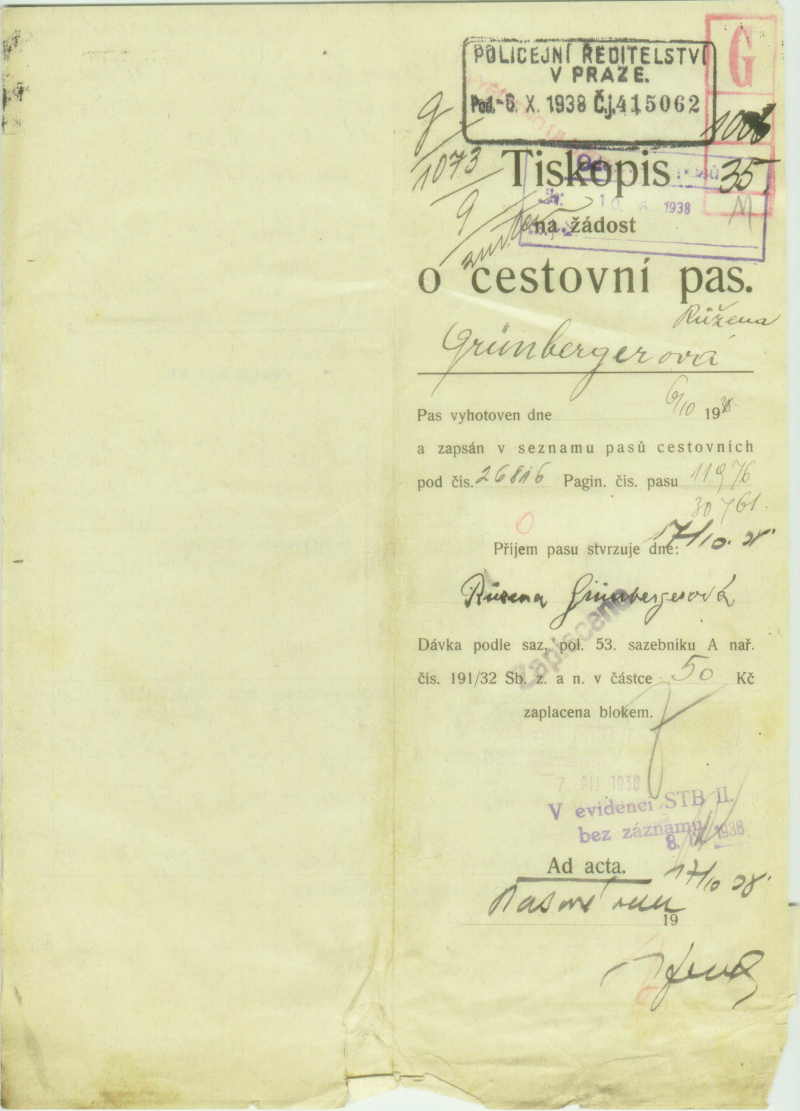 G
POLICEJNÍ ŘEDITELSTVÍ
V PRAZE.
Pod. -6. X. 1938 Č.j. 415062
g
1073
9
Tiskopis
35
1938
na žádost
o cestovní pas.
Růžena
Grünbergerová
Pas vyhotoven dne 6/10 1938
a zapsán v seznamu pasů cestovních
pod čís. 26816 Pagin. čís. pasu 11976
30761.
Příjem pasu stvrzuje dne: 17/10. 38
Růžena Grünbergerová
Zaplaceno
Dávka podle saz. pol. 53. sazebníku A nař.
čís. 191/32 Sb. z. a n. v částce 50 Kč
zaplacena blokem.
7 1938
V evidenci STB II.
bez záznamu
8. 1938
Ad acta. 17/10 38.
19